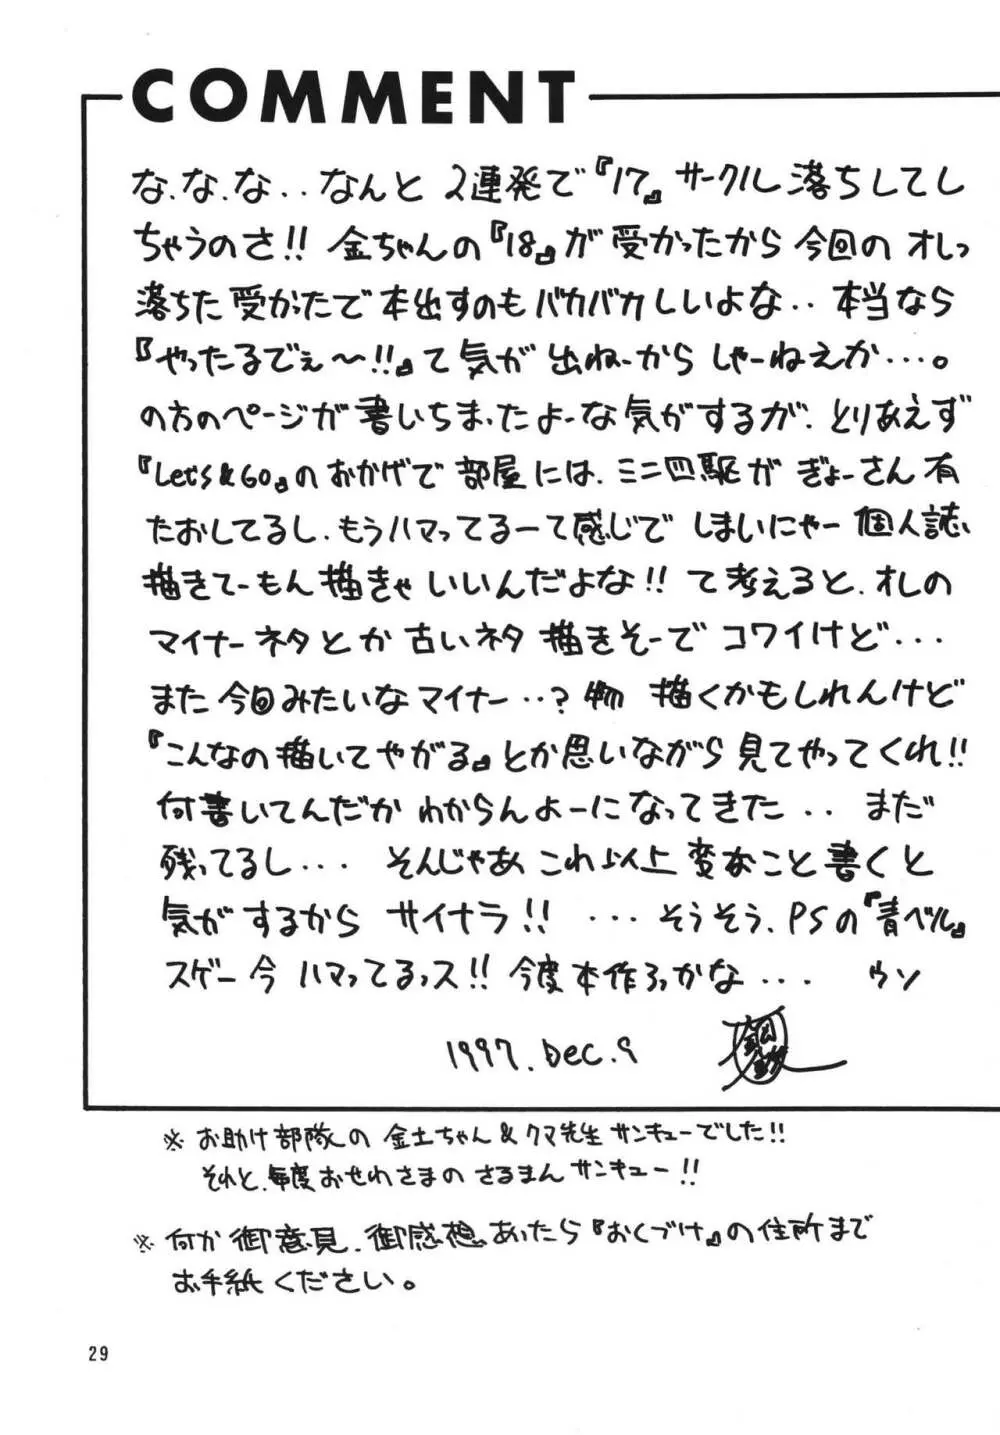 COMMENT
な、な、な‥なんと 2連発で『17』サークル落ちしてし
ちゃうのさ!! 金ちゃんの『18』が受かったから今回のオレっ
落ちた受かたで本出すのもバカバカしいよな‥本当なら
『やったるでぇ〜!!』て気が出ねーからしゃーねえか…。
の方のページが書いちまったよーな気がするが、とりあえず
『Let's&Go』のおかげで部屋には、ミニ四駆がぎょーさん有
たおしてるし、もうハマってるーて感じでしまいにゃー個人誌、
描きてーもん描きゃいいんだよな!! て考えると、オレの
マイナーネタとか古いネタ描きそーでコワイけど...
また今回みたいなマイナー‥?物 描くかもしれんけど
『こんなの描いてやがる』とか思いながら見てやってくれ!!
何書いてんだかわからんよーになってきた‥ まだ
残ってるし... そんじゃあこれ以上変なこと書くと
気がするから サイナラ!! ...そうそう、PSの『青ベル』
スゲー今ハマってるっス!! 今度本作ろっかな... ウソ
1997.Dec.9
※お助け部隊の金土ちゃん&クマ先生サンキューでした!!
それと、毎度おせわさまのさるまんサンキュー!!
※何か御意見、御感想あったら『おくづけ』の住所まで
お手紙ください。
29